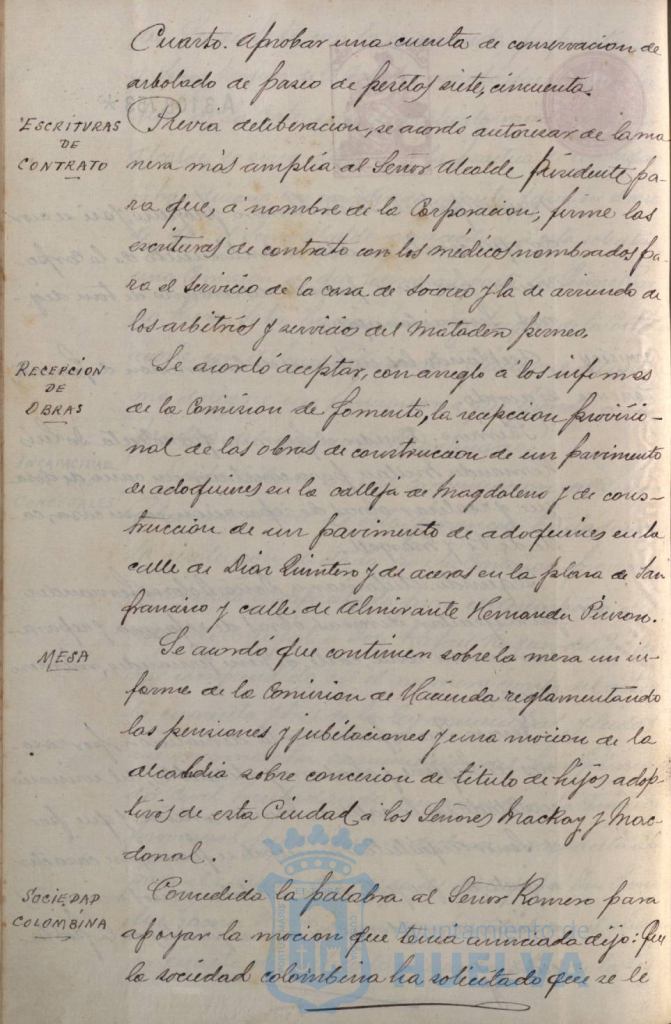 Cuarto. Aprobar una cuenta de conservacion de
arbolado de paseo de pesetas siete, cincuenta.
ESCRITURAS
DE
CONTRATO
Previa deliberacion, se acordó autorizar de la ma
nera más amplia al Señor Alcalde Presidente pa-
ra que, á nombre de la Corporacion, firme las
escrituras de contrato con los médicos nombrados pa
ra el servicio de la casa de Socorro y la de arriendo de
los arbitrios y servicio del Matadero
RECEPCION
DE
OBRAS
Se acordó aceptar, con arreglo á los informes
de la Comision de fomento, la recepcion provisio-
nal de las obras de construccion de un pavimento
de adoquines en la calleja de Magdaleno y de cons-
truccion de un pavimento de adoquines en la
calle de Diaz Quintero y de aceras en la plaza de San
francisco y calle de Almirante Hernandez Pinzon.
MESA
Se acordó que continuen sobre la mesa un in-
forme de la Comision de Hacienda reglamentando
las pensiones y jubilaciones y una mocion de la
alcaldia sobre concesion de titulo de hijos adop-
tivos de esta Ciudad á los Señores Mackay y Mac-
donal.
SOCIEDAD
COLOMBINA
Concedida la palabra al Señor Romero para
apoyar la mocion que tenia anunciada dijo: Que
la sociedad colombina ha solicitado que se le
Ayuntamiento de
HUELVA